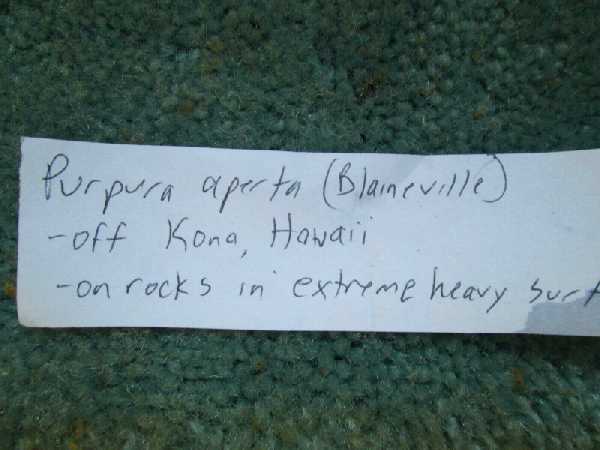 Purpura aperta (Blaineville)
-off Kona, Hawaii
-on rocks in extreme heavy surf